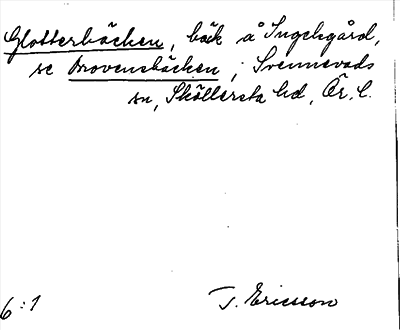 Glotterbäcken, bäck å Ingelsgård,
se Brovensbäcken, i Svennevads
sn, Sköllersta hd, Ör. l.
6:1
T. Ericsson